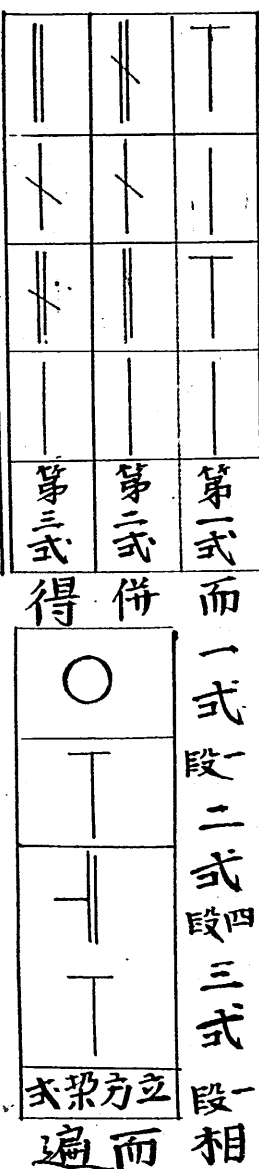 第一式
第二式
第三式
而一式一段二式四段三式一段相
併
得
立方式
而
遍